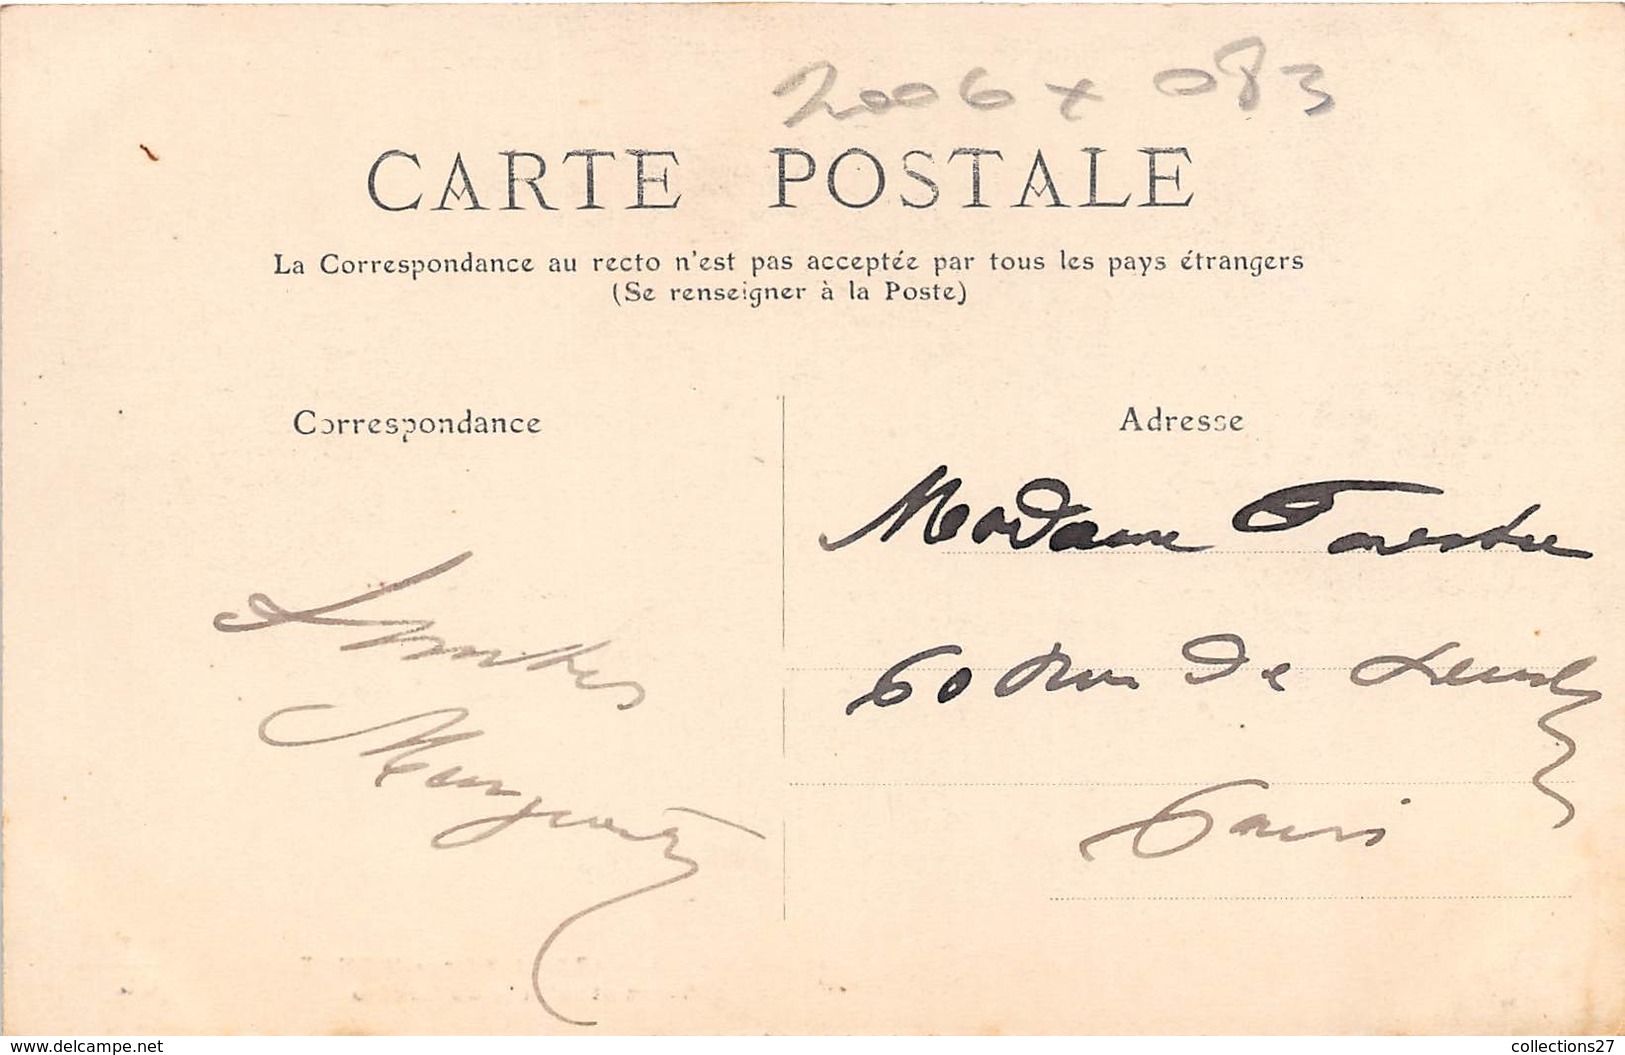 2006 x 083
CARTE POSTALE
La Correspondance au recto n'est pas acceptée par tous les pays étrangers
(Se renseigner à la Poste)
Correspondance
Adresse
Madame Forestier
60 Rue de
Paris
www.delcampe.net
collections27